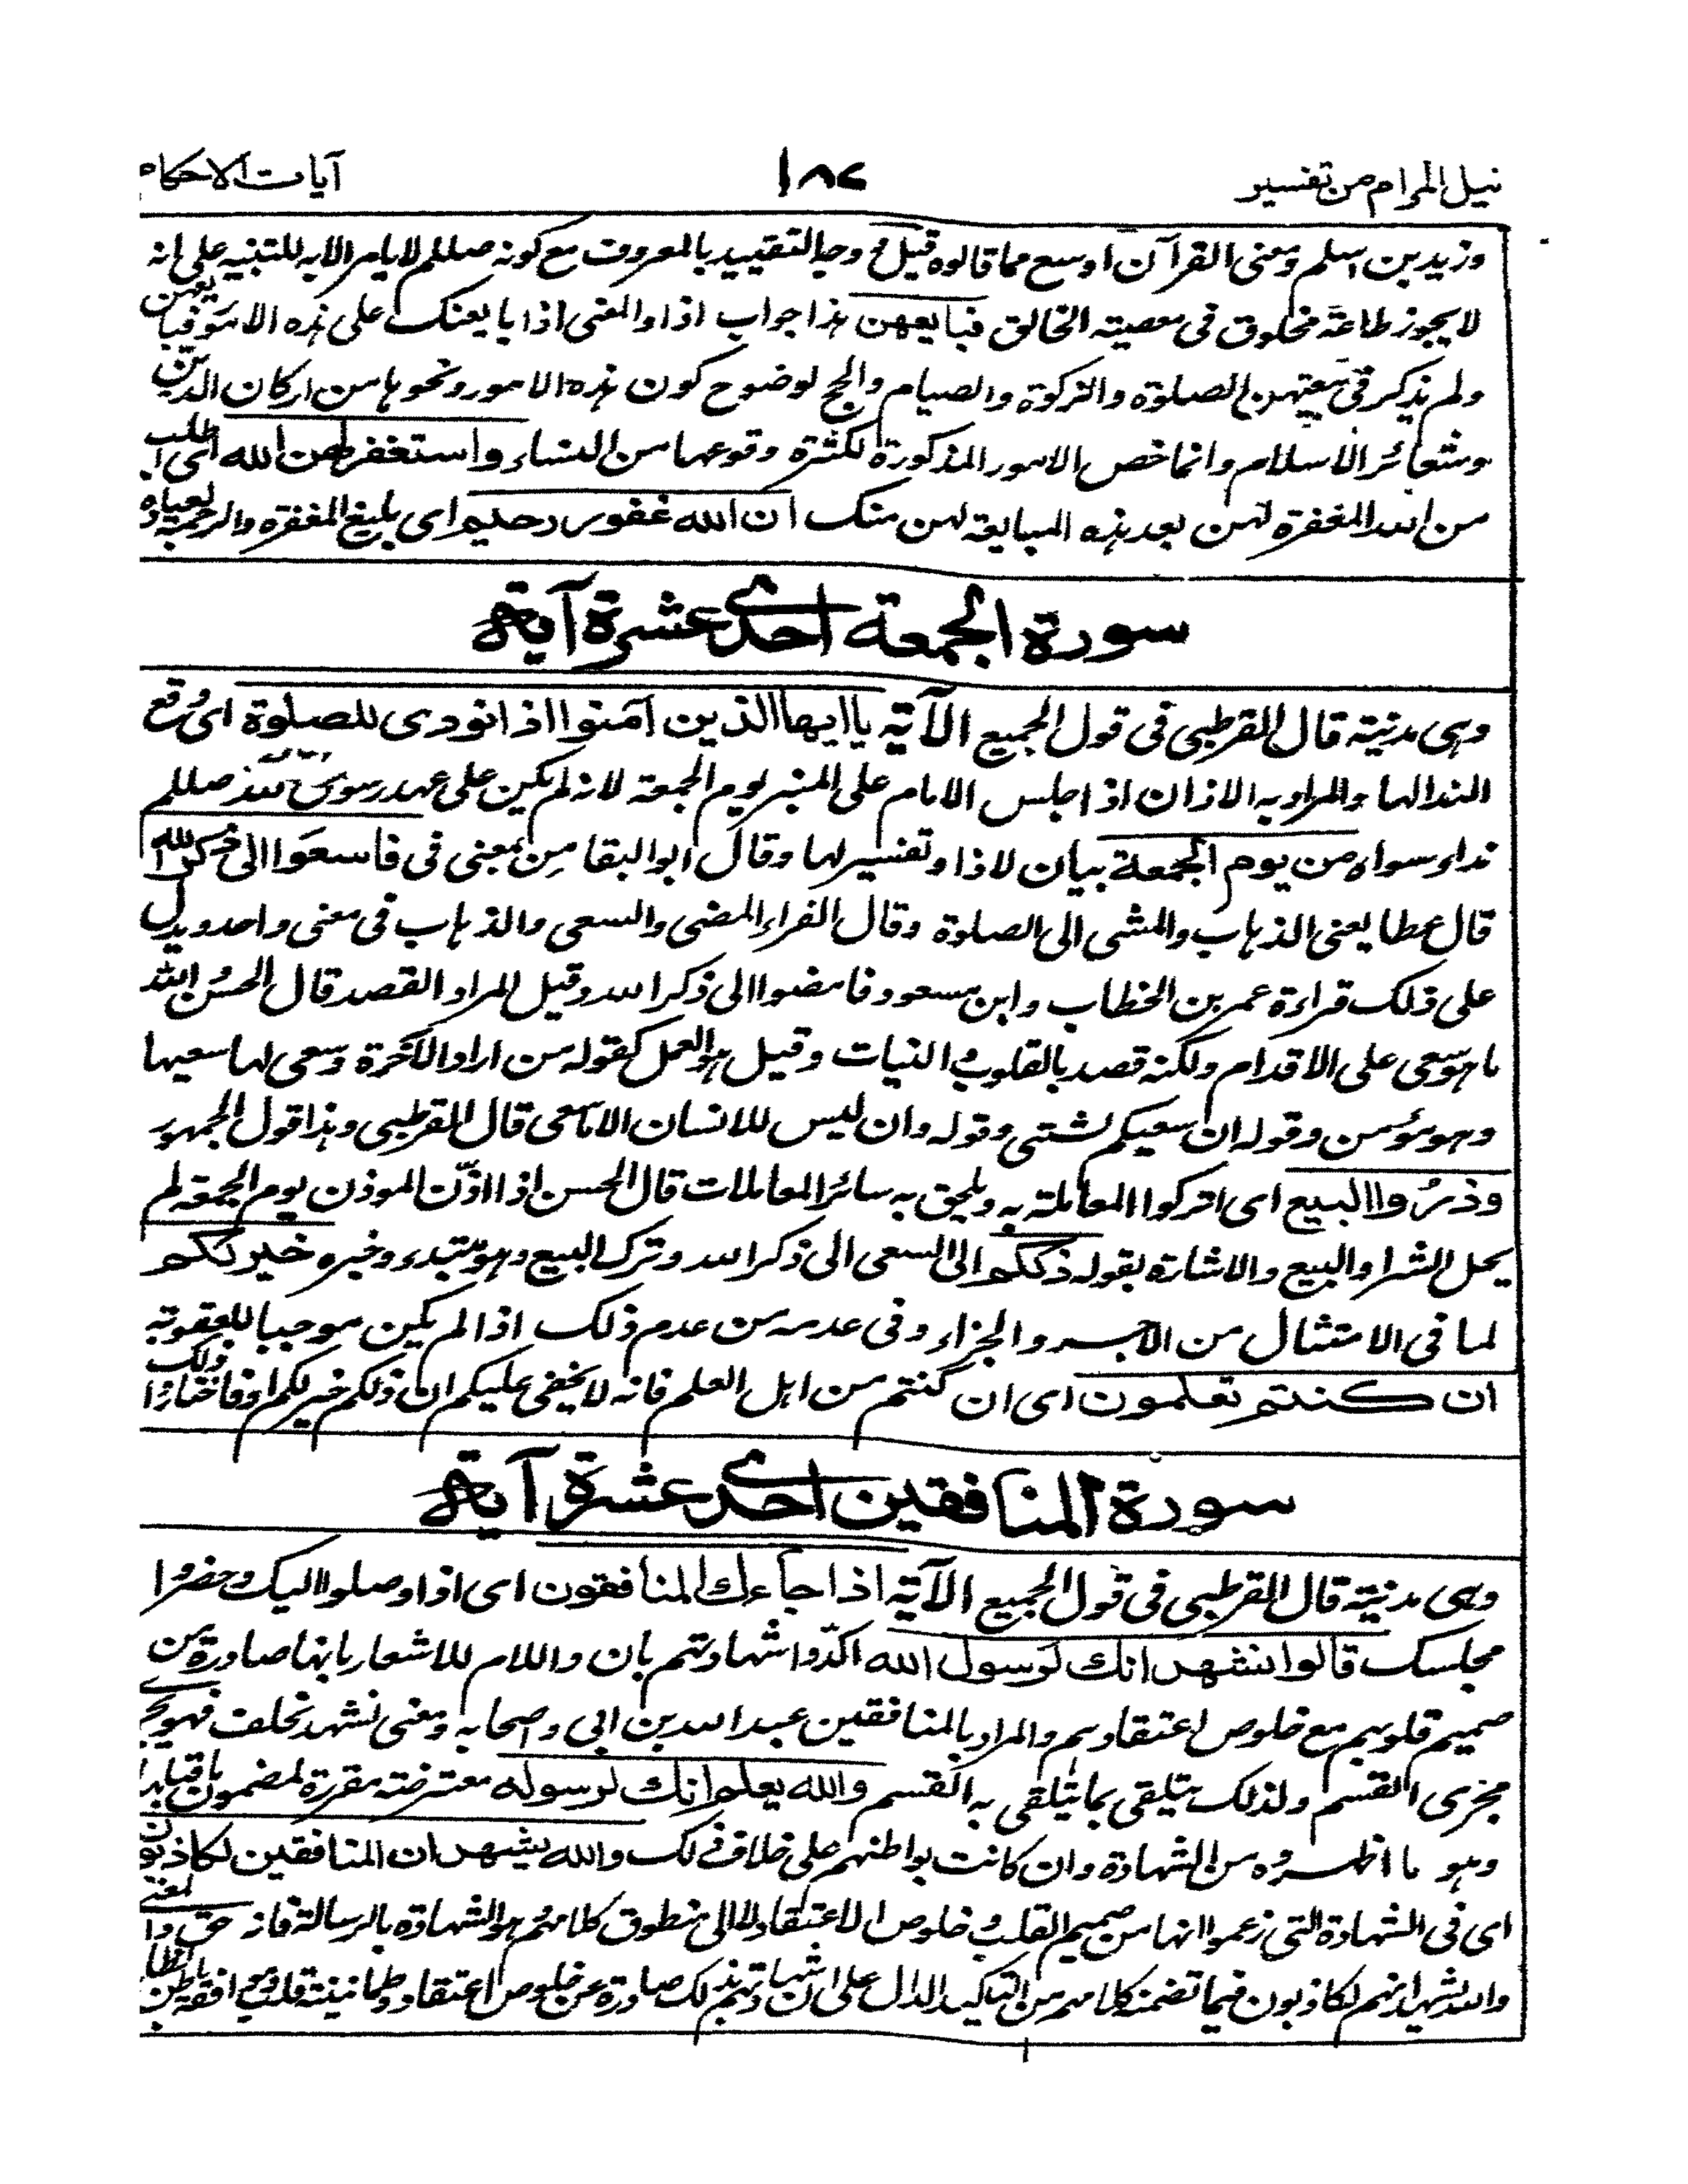 نيل المرام من تفسير
١٨٢
آيات الاحكام
وزيد بن اسلم ومعنى القرآن اوسع مما قالوه قيل وجه التقييد بالمعروف مع كونه صللم لا يامر الا به للتنبيه على انه
لا يجوز طاعة مخلوق فى معصية الخالق فبايعهن هذا جواب اذا والمعنى اذا بايعنك على هذه الامور فبايعهن
ولم يذكر فى بيعتهن الصلوة والزكوة والصيام والحج لوضوح كون هذه الامور ونحوها من اركان الدين
وشعائر الاسلام وانما خص الامور المذكورة لكثرة وقوعها من النساء واستغفر لهن الله اى اطلب
من الله المغفرة لهن بعد هذه المبايعة لهن منك ان الله غفور رحيم اى بليغ المغفرة والرحمة لعباده
سورة الجمعة احدى عشرة آية
وهى مدنية قال القرطبى فى قول الجميع الآية يا ايها الذين آمنوا اذا نودى للصلوة اى وقع
النداء لها والمراد به الاذان اذا جلس الامام على المنبر يوم الجمعة لانه لم يكن على عهد رسول الله صللم
نداء سواه من يوم الجمعة بيان لاذا وتفسير لها وقال ابو البقا من بمعنى فى فاسعوا الى ذكر الله
قال عطا يعنى الذهاب والمشى الى الصلوة وقال الفراء المضى والسعى والذهاب فى معنى واحد ويدل
على ذلك قراءة عمر بن الخطاب وابن مسعود فامضوا الى ذكر الله وقيل المراد القصد قال الحسن والله
ما هو سعى على الاقدام ولكنه قصد بالقلوب والنيات وقيل هو العمل كقوله من اراد الآخرة وسعى لها سعيها
وهو مؤمن وقوله ان سعيكم لشتى وقوله وان ليس للانسان الا ما سعى قال القرطبى وهذا قول الجمهور
وذروا البيع اى اتركوا المعاملة به ويلحق به سائر المعاملات قال الحسن اذا اذّن الموذن يوم الجمعة لم
يحل الشراء والبيع والاشارة بقوله ذلكم الى السعى الى ذكر الله وترك البيع وهو مبتدء وخبره خير لكم
لما فى الامتثال من الاجر والجزاء وفى عدمه من عدم ذلك اذا لم يكن موجبا للعقوبة
ان كنتم تعلمون اى ان كنتم من اهل العلم فانه لا يخفى عليكم ان ذلكم خير لكم او فاختاروا ذلك
سورة المنافقين احدى عشرة آية
وهى مدنية قال القرطبى فى قول الجميع الآية اذا جاءك المنافقون اى اذا وصلوا اليك وحضروا
مجلسك قالوا نشهد انك لرسول الله اكدّوا شهادتهم بان واللام للاشعار بانها صادرة من
صميم قلوبهم مع خلوص اعتقادهم والمراد بالمنافقين عبد الله بن ابى واصحابه ومعنى نشهد نحلف فهو يجرى
مجرى القسم ولذلك يتلقى بما يتلقى به القسم والله يعلم انك لرسوله معترضة مقررة لمضمون ما قبلها
وهو ما اظهروه من الشهادة وان كانت بواطنهم على خلاف ذلك والله يشهد ان المنافقين لكاذبون
اى فى الشهادة التى زعموا انها من صميم القلب وخلوص الاعتقاد لا الى منطوق كلامهم وهو الشهادة بالرسالة فانه حق والمعنى
والله يشهد انهم لكاذبون فيما تضمنه كلامهم من التاكيد الدال على ان شهادتهم بذلك صادرة عن خلوص اعتقاد وطمانينة قلب وموافقة باطن